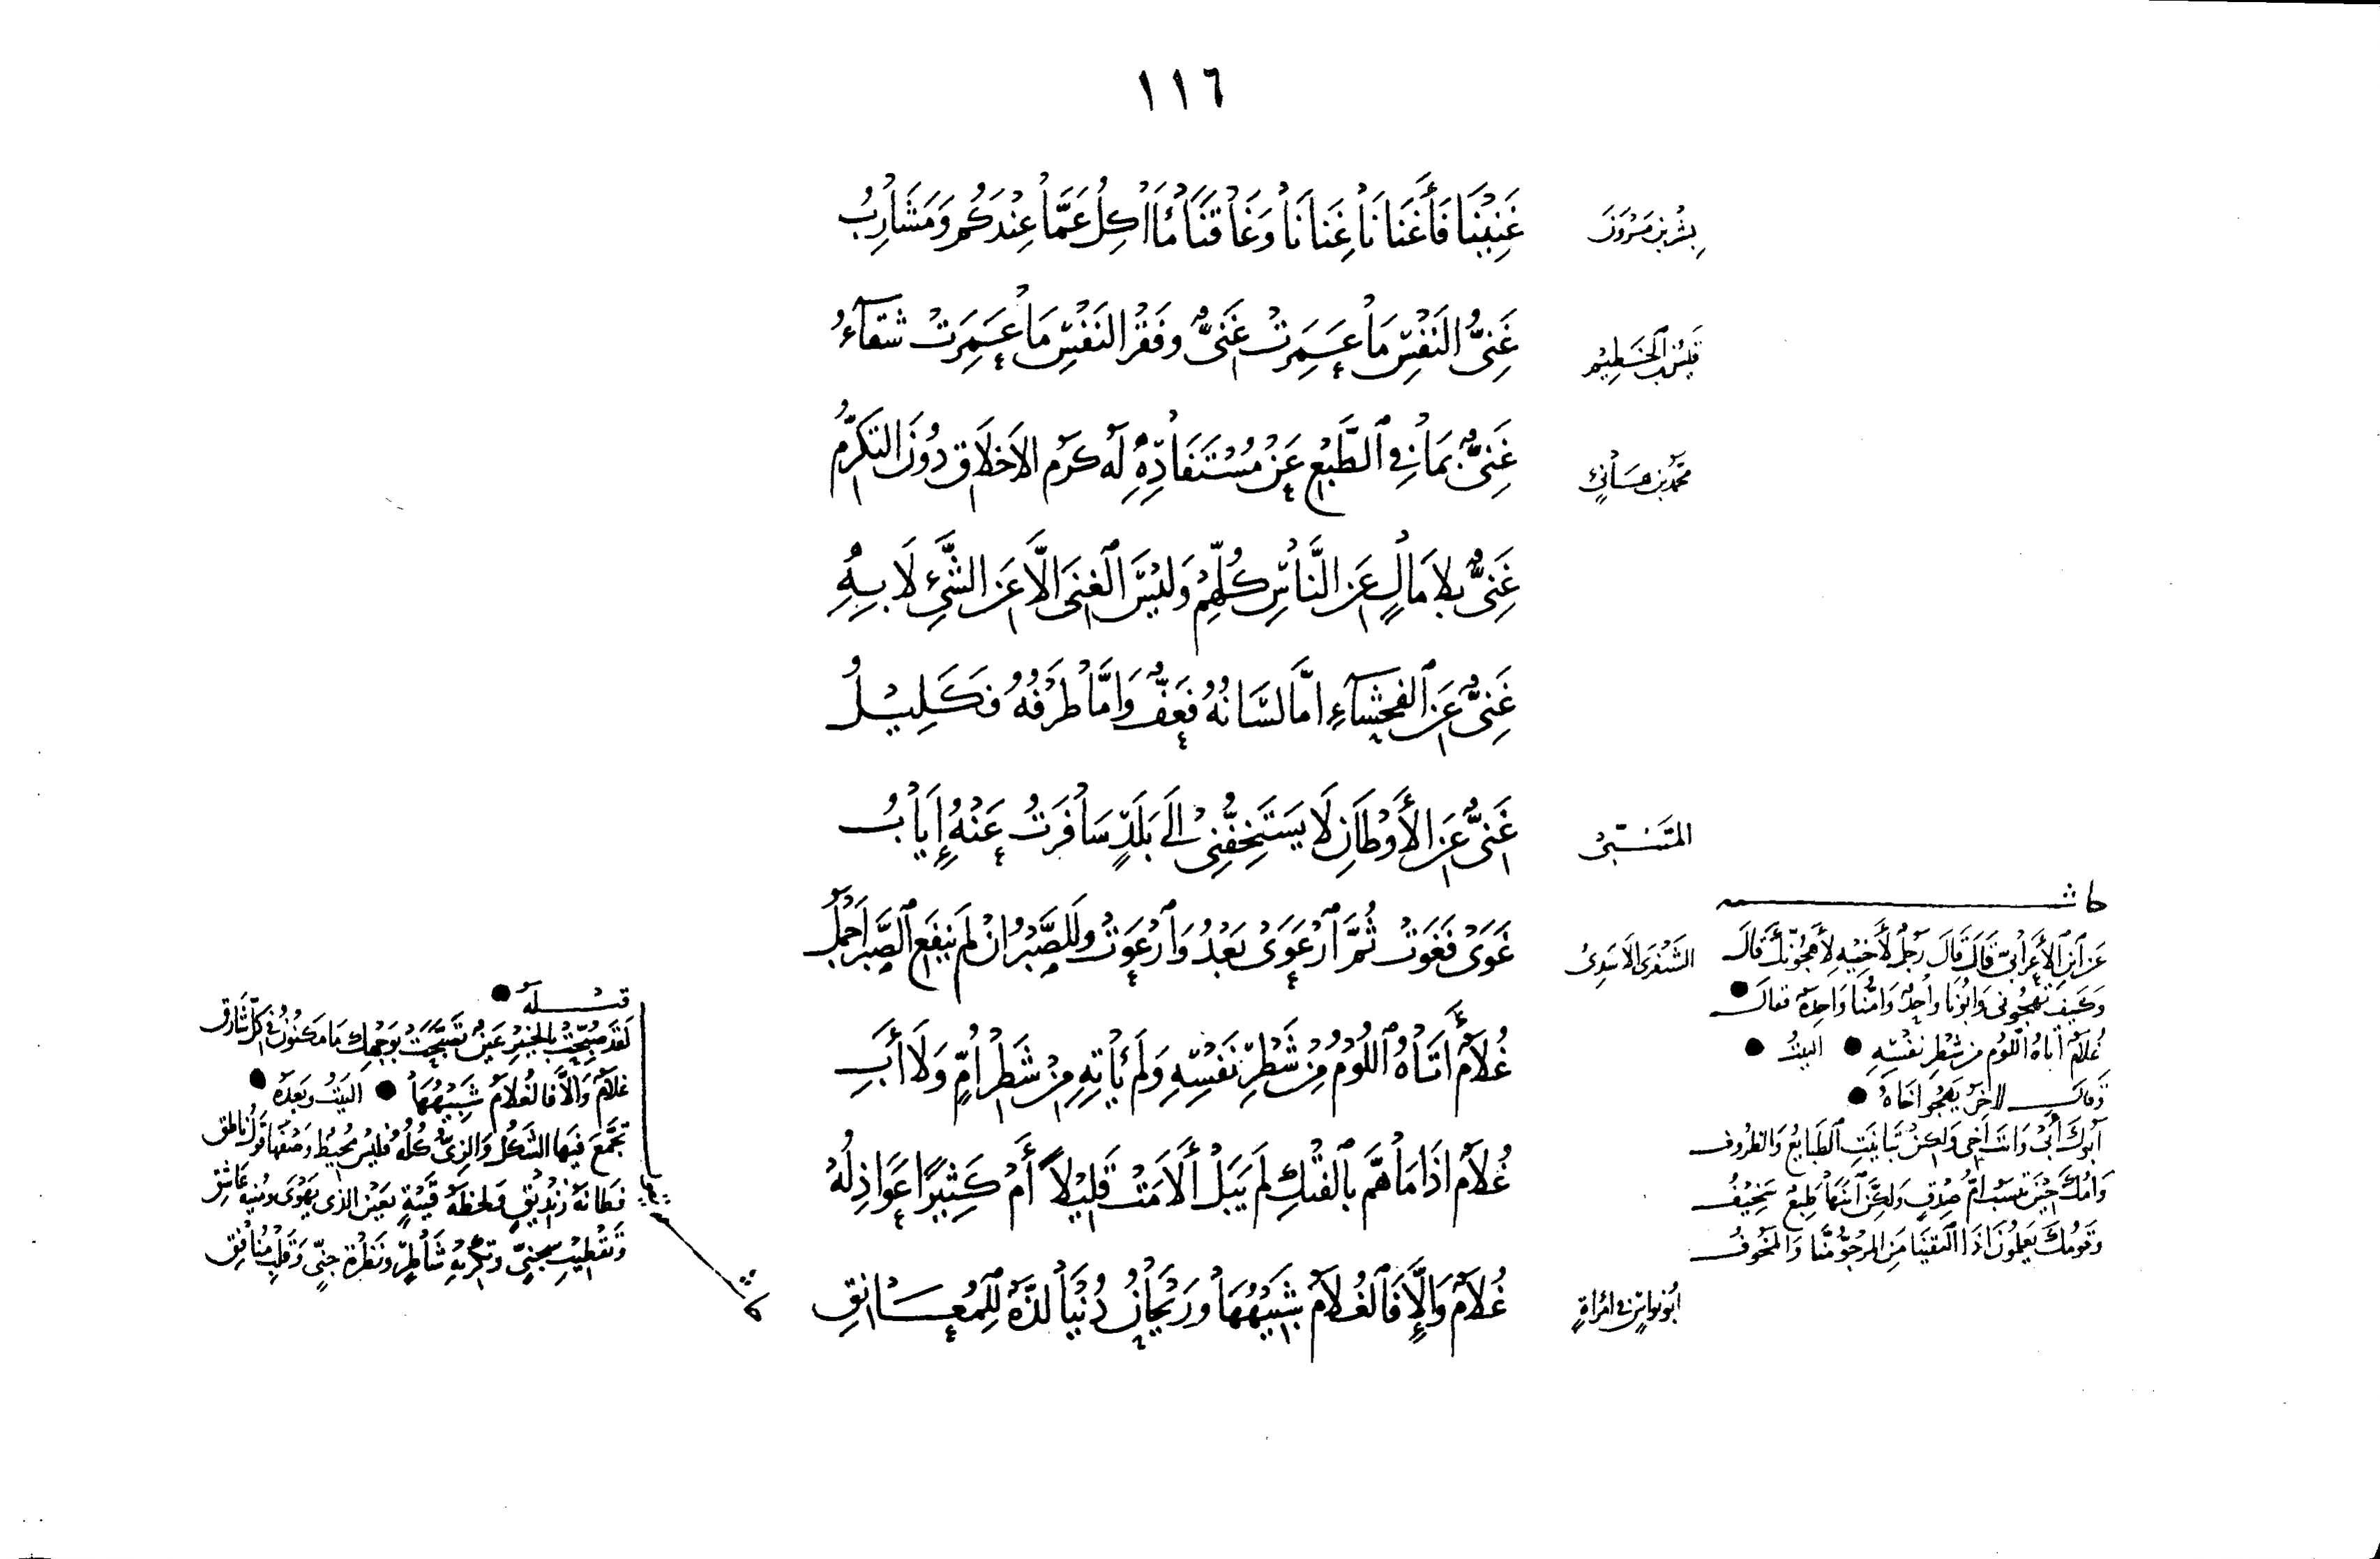 ١١٦
بِشْرُ بن مَرْوَانَ
غَنِيْنَا فَأَغْنَانَا غِنَانَا وَعَاقَنَا مَآكِلُ عَمَّا عِنْدَكُمْ وَمَشَارِبُ
قَيْسُ بن الخَطِيْم
غَنِيُّ النَفْسِ مَا عَمِرَتْ غَنِيٌّ وفَقْرُ النَفْسِ مَا عَمِرَتْ شَقَآءُ
محمّد بن هَانِئ
غَنِيٌّ بمَا فِي الطَّبْعِ عَنْ مُسْتَفَادِهِ لَهُ كَرَمُ الاَخلَاقِ دُوْنَ التَكَرُّمِ
غَنِيٌّ بلاَ مَالٍ عَنِ النَّاسِ كُلِّهِمْ وَليْسَ الغِنَى الَّا عَنِ الشَّيْءِ لَا بِهِ
غَنِيٌّ عَنِ الفَحْشَآءِ امَّا لِسَانُهُ فَعَفٌّ وَامَّا طَرْفُهُ فَكَلِيْلُ
المتَنَبِّي
غَنِيٌّ عَنِ الأَوْطَانِ لَا يَسْتَخِفُّنِيْ الَى بَلَدٍ سَافَرْتُ عَنْهُ إِيَابُ
الشَنْفَرَى الاَسَدِيُ
غَوَىْ فَغَوَتْ ثُمَّ ارْعَوَىْ بَعْدُ وَارْعَوَتْ وَلَلصَّبْرُ انْ لَمْ يَنْفَعِ الصَّبْرُ اَجْمَلُ
غُلاَمٌ أَتَاهُ اللُوْمُ مِنْ شَطْرِ نَفْسِهِ وَلَمْ يَأتِهِ مِنْ شَطْرِ اُمٍّ وَلَا أَبِ
غُلاَمٌ اذَا مَا هَمَّ بِالفَتْكِ لَمْ يُبَلْ أَلاَمَتْ قَلِيْلاً أَمْ كَثِيْرًا عَوَاذِلُهْ
ابُو نوَاسٍ في امْرَاةٍ
غُلاَمٌ وَإِلَّا فَالغُلاَمُ شَبِيْهُهَا وَرَيْحَانُ دُنْيَا لَذَّةٌ لِلمُعَانِقِ
عَن ابنِ الأَعرَابيِّ قَالَ قَالَ رَجُلٌ لأَخيْهِ لأَهجُوَنَّكَ قَالَ
وَكَيفَ تَهجُوني وَابُونَا وَاحِدٌ وَامُّنَا وَاحِدَةٌ فقالَ
غُلامٌ اتَاهُ اللُوم مِن شَطرِ نَفْسِهِ ● البيتُ ●
وَقالَ آخِرُ يَهْجُو اخَاهُ ●
اَبُوكَ أَبِيْ وَانتَ اَخِي وَلكِنْ تَبَايَنَتِ الطَبَايعُ وَالظُروفُ
وَامُّكَ حِيْنَ تُنسَبُ امُّ صِدْقٍ وَلكِنَّ ابْنَهَا طَبِعٌ سَخِيْفُ
وَقَومُكَ يَعلَمُونَ اذَا التَقَيْنَا مَنِ المَرْجُوُّ مِنَّا وَالمَخُوفُ
قبْلَهُ ●
غلامٌ وَالَّا فَالغُلاَمُ شَبِيْهُهَا ● البَيتُ وَبَعدَهُ ●
تَجَمَّعَ فيْهَا الشَكلُ وَالزِيُّ كُلُّهُ فَليْسَ يُحيْطُ وَصْفَهَا قَولُ نَاطِقِ
فَطَانَةُ زنْدِيْقٍ وَلحْظَةُ قَيْنَةٍ بعَيْنِ الذي يَهْوَى وَمُنيَةُ عَاشِقِ
وَتَقْطِيْبُ سِجنيٍّ وَتكْرِيْهُ شَاطِرٍ وَنَظْرَةُ جِنّيٍّ وَقَلْبُ مُنَافِقِ